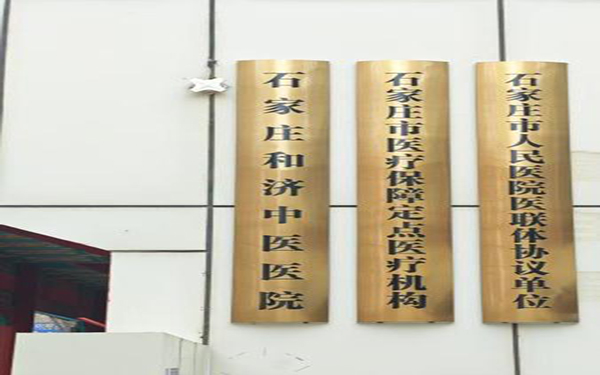 石家庄和济中医医院
石家庄市医疗保障定点医疗机构
石家庄市人民医院医联体协议单位